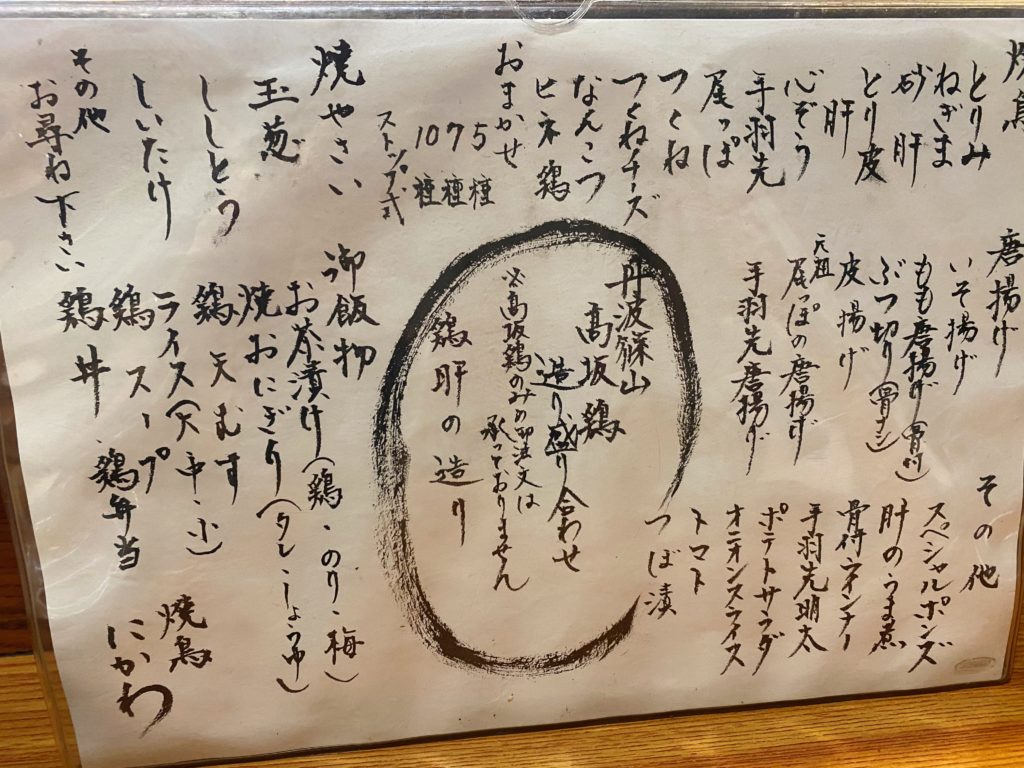 焼鳥
とりみ
ねぎま
砂肝
とり皮
肝
心ぞう
手羽先
尾っぽ
つくね
つくねチーズ
なんこつ
ヒネ鶏
おまかせ
5種
7種
10種
ストップ式
焼やさい
玉葱
ししとう
しいたけ
その他
お尋ね下さい
唐揚げ
いそ揚げ
もも唐揚げ(骨付)
ぶつ切り(骨ナシ)
皮揚げ
元祖
尾っぽの唐揚げ
手羽先唐揚げ
丹波篠山
高坂鶏
造り盛り合わせ
※高坂鶏のみの御注文は
承っておりません
鶏肝の造り
御飯物
お茶漬け(鶏・のり・梅)
焼おにぎり(タレ・しょうゆ)
鶏天むす
ライス(大・中・小)
鶏スープ
鶏丼
鶏弁当
その他
スペシャルポンズ
肝のうま煮
骨付ウインナー
手羽先明太
ポテトサラダ
オニオンスライス
トマト
つぼ漬
焼鳥
にかわ